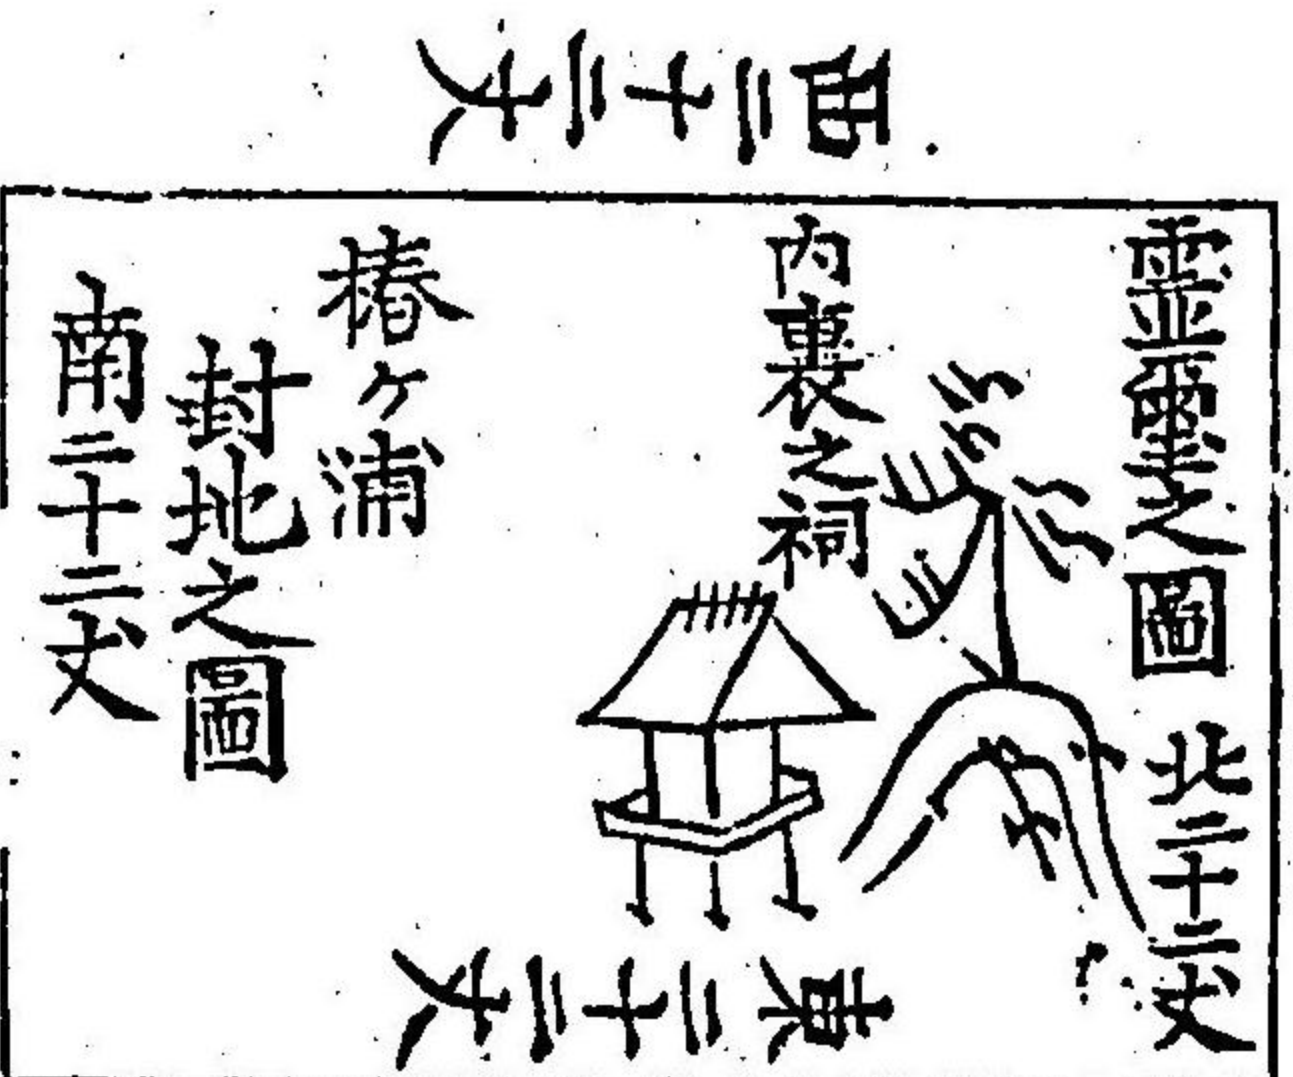 西二十二丈
霊璽之圖
北二十二丈
内裏之祠
椿ヶ浦
封地之圖
南二十二丈
東二十二丈